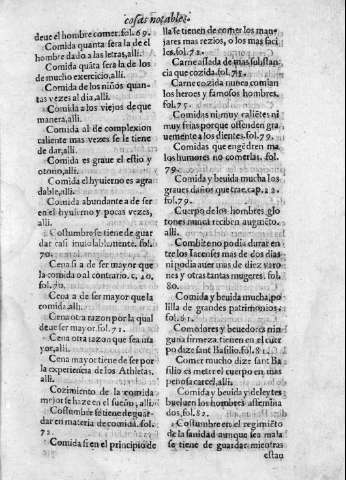 cosas notables.
deue el hombre comer. fol. 69.
Comida quanta sera la de l
hombre dado a las letras, alli.
Comida quãta sera la de los
de mucho exercicio, alli.
Comida de los niños quan-
tas vezes al dia, alli.
Comida a los viejos de que
manera, alli.
Comida al de complexion
caliente mas vezes se le tiene
de dar, alli.
Comida es graue el estio y
otoño, alli.
Comida el hyuierno es agra
dable, alli.
Comida abundante a de ser
en el hyuierno y pocas vezes,
alli.
Costumbre se tiene de guar
dar casi inuiolablemente. fol.
70.
Cena si a de ser mayor que
la comida o al contrario. c. 20.
fol. 70.
Cena a de ser mayor que la
comida alli.
Cena otra razon por la qual
deue ser mayor fol. 71.
Cena otra razon que sea ma
yor, alli.
Cena mayor tiene de ser por
la experiencia de los Athletas.
alli.
Cozimiento de la comida
mejor se haze en el sueño, alli.
Costumbre se tiene de guar-
dar en materia de comida. fol.
72.
Comida si en el principio de
lla se tienen de comer los man-
jares mas rezios, o los mas faci
les. fol. 72.
Carne assada de mas substan-
cia que cozida. fol. 75.
Carne cozida nunca comian
los heroes y famosos hombres.
fol. 75.
Comidas ni muy caliẽtes ni
muy frias porque offenden gra
uemente a los dientes. fol. 79.
Comidas que engẽdren ma
los humores no comerlas. fol.
79.
Comida y beuida mucha los
graues daños que trae. cap. 22.
fol. 79.
Cuerpo de los hombres glo
tones nunca reciben augmẽto.
alli.
Combite no podia durar en
tre los Lacenses mas de dos dias
ni podia auer mas de diez varo
nes y otras tantas mugeres. fol.
80.
Comida y beuida mucha, po
lilla de grandes patrimonios.
fol. 81.
Comedores y beuedores nin
guna firmeza tienen en el cuer
po dize sant Basilio. fol. 81.
Comer mucho dize sant Ba
silio es meter el cuerpo en mas
penosa carcel, alli.
Comida y beuida y deleytes
bueluen los hombres afemina
dos, fol. 82.
Costumbre en el regimiẽto
de la sanidad aunque sea mala
se tiene de guardar mientras
estau